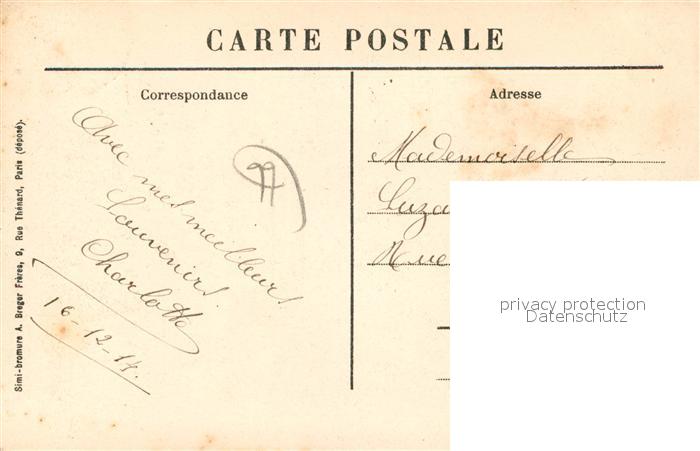 CARTE POSTALE
Correspondance
Avec mes meilleurs
Souvenirs
Charlotte
16-12-14.
Adresse
Mademoiselle
Suza
Rue
privacy protection
Datenschutz
Simi-bromure A. Breger Frères, 9, Rue Thénard, Paris (déposé).